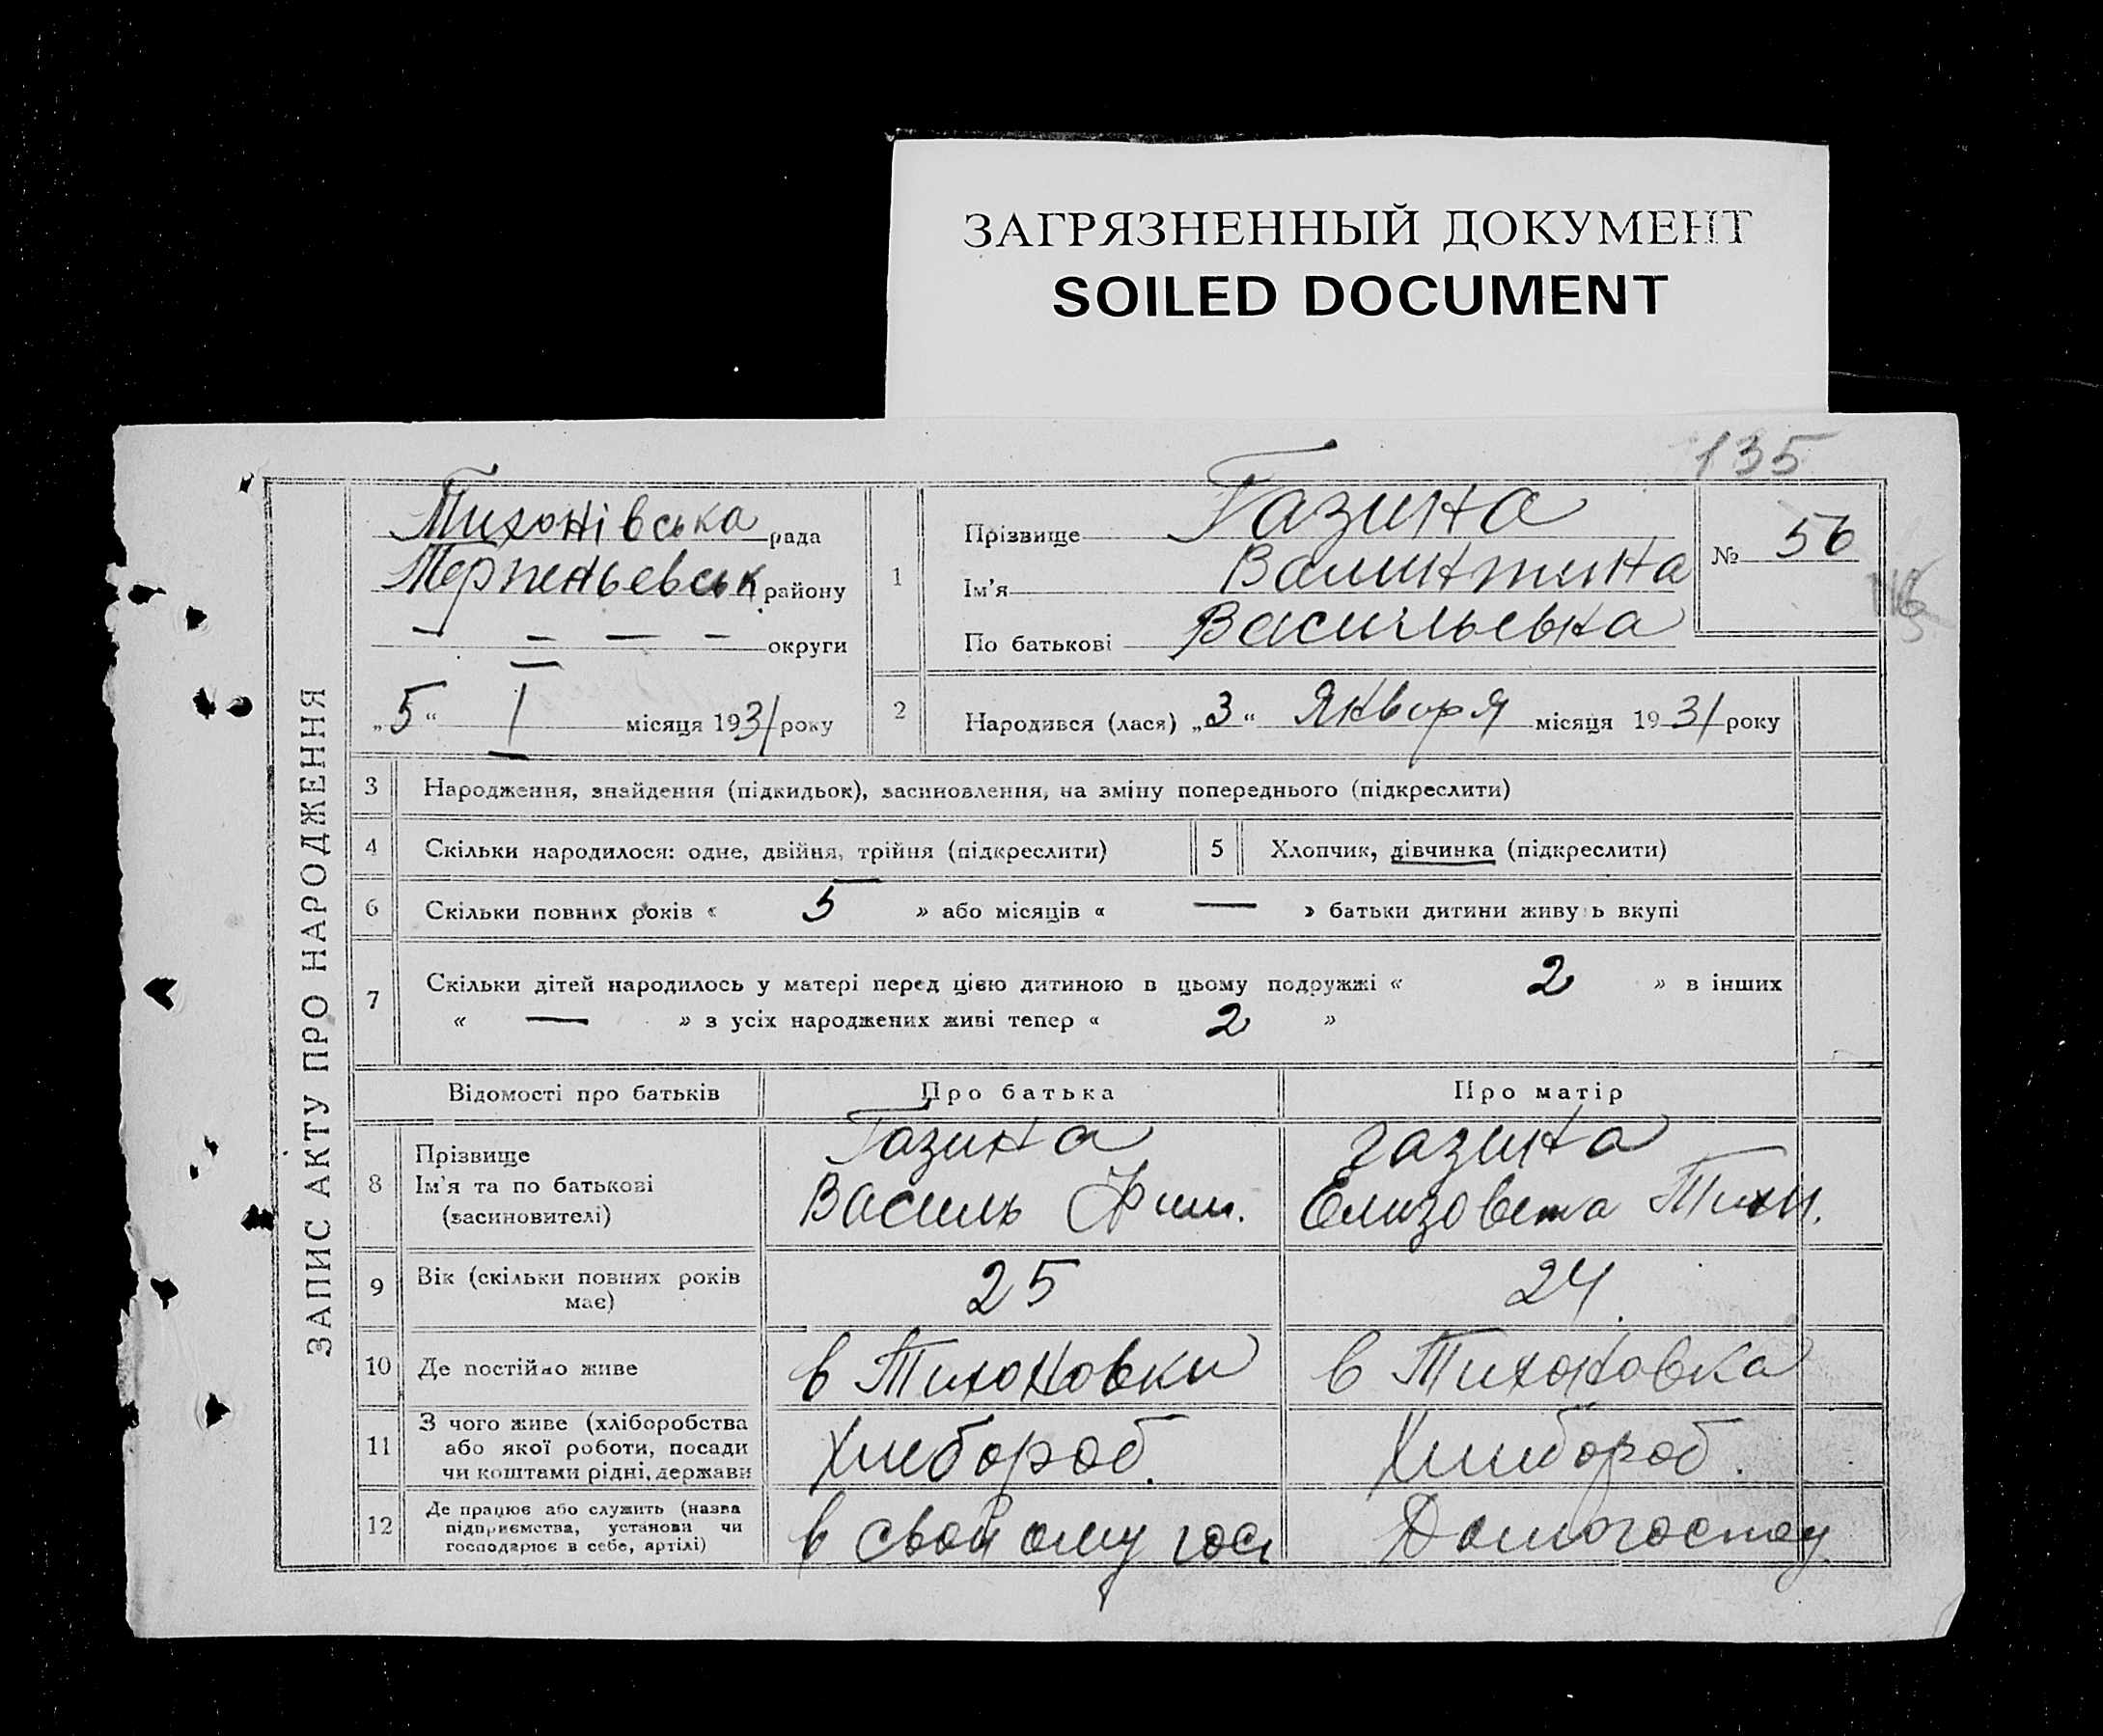 ЗАГРЯЗНЕННЫЙ ДОКУМЕНТ
SOILED DOCUMENT
135
ЗАПИС АКТУ ПРО НАРОДЖЕННЯ
Тихонівська рада
Терпеньевськ району
— — — — округи
„5“ I місяця 1931 року
1
Прізвище Газина
Ім'я Валинтина
По батькові Васильевна
№ 56
2
Народився (лася) „3“ Января місяця 1931 року
3 Народження, знайдення (підкидьок), засиновлення, на зміну попереднього (підкреслити)
4 Скільки народилося: одне, двійня, трійня (підкреслити)
5 Хлопчик, дівчинка (підкреслити)
6 Скільки повних років « 5 » або місяців « — » батьки дитини живуть вкупі
7 Скільки дітей народилось у матері перед цією дитиною в цьому подружжі « 2 » в інших
« — » з усіх народжених живі тепер « 2 »
Відомості про батьків Про батька Про матір
8
Прізвище
Ім'я та по батькові
(засиновителі)
Газина
Василь Фил.
Газина
Елизовета Тихи.
9
Вік (скільки повних років
має)
25
24
10 Де постійно живе
в Тихоновки
в Тихоновка
11
З чого живе (хліборобства
або якої роботи, посади
чи коштами рідні, держави
Хлебороб.
Хлиборoб.
12
Де працює або служить (назва
підприємства, установи чи
господарює в себе, артілі)
в свойому гос
Домогоспод